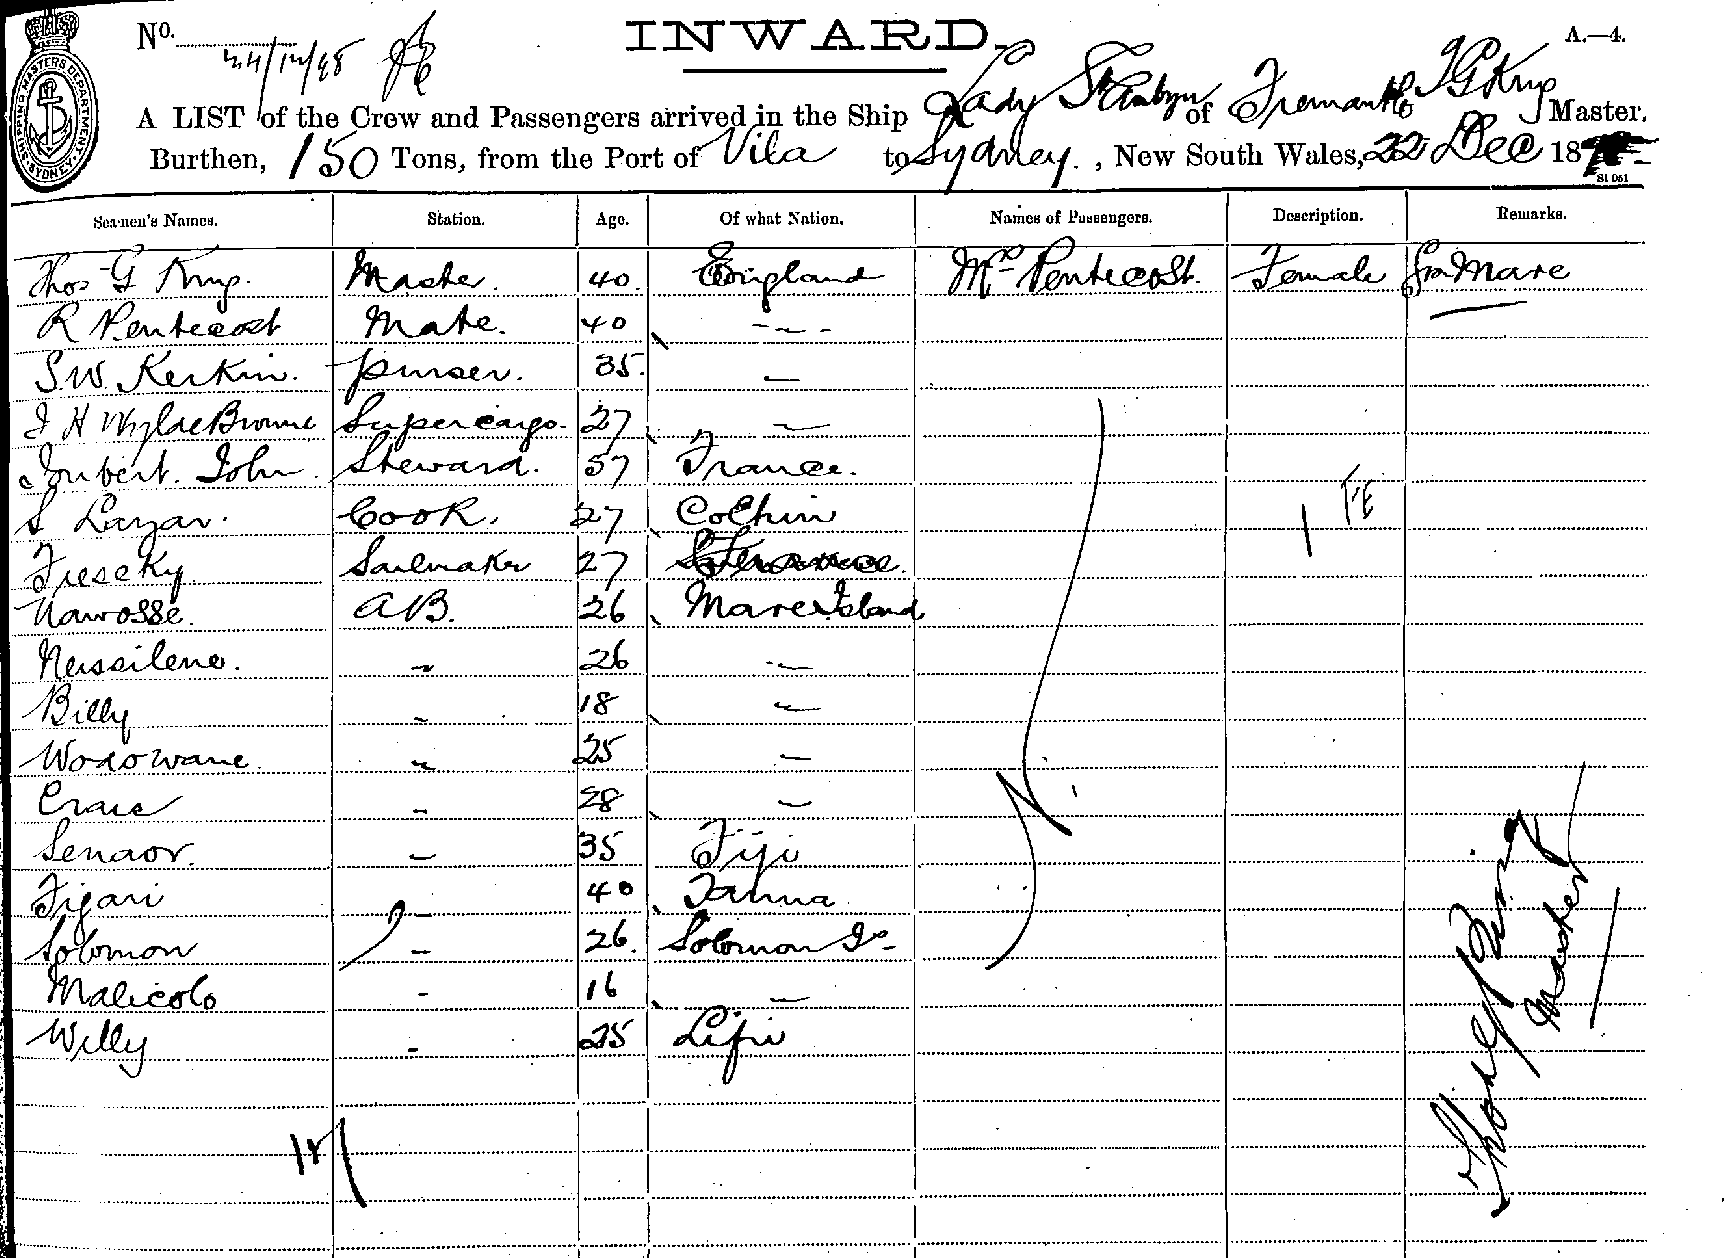 No. 24/12/98
INWARD.
A.—4.
A LIST of the Crew and Passengers arrived in the Ship Lady of Fremantle T G King Master.
Burthen, 150 Tons, from the Port of Vila to Sydney. , New South Wales, 22 Dec 18
SHIPPING MASTERS DEPARTMENT SYDNEY
Seamen's Names. Station. Age. Of what Nation. Names of Passengers. Description. Remarks.
Thos G King. Master. 40. England Mrs Pentecost. Female from Mare
R Pentecost Mate. 40 -~-
S.W. Kerkin. purser. 35. —
J H Wylde Browne Supercargo. 27 —
Joubert. John Steward. 57 France.
S Lazar. Cook. 27 Cochin
1 FE
Freseky Sailmaker 27
Nawosse. AB. 26 Mare Island
Neissilene. " 26 —
Billy " 18 —
Wodowane. " 25 —
" 28 —
Senaor. " 35 Fiji
Figari " 40 Tanna
Solomon " 26. Solomon Is
Malicolo " 16 —
Willy " 25 Lifu
17
Thos G King
Master